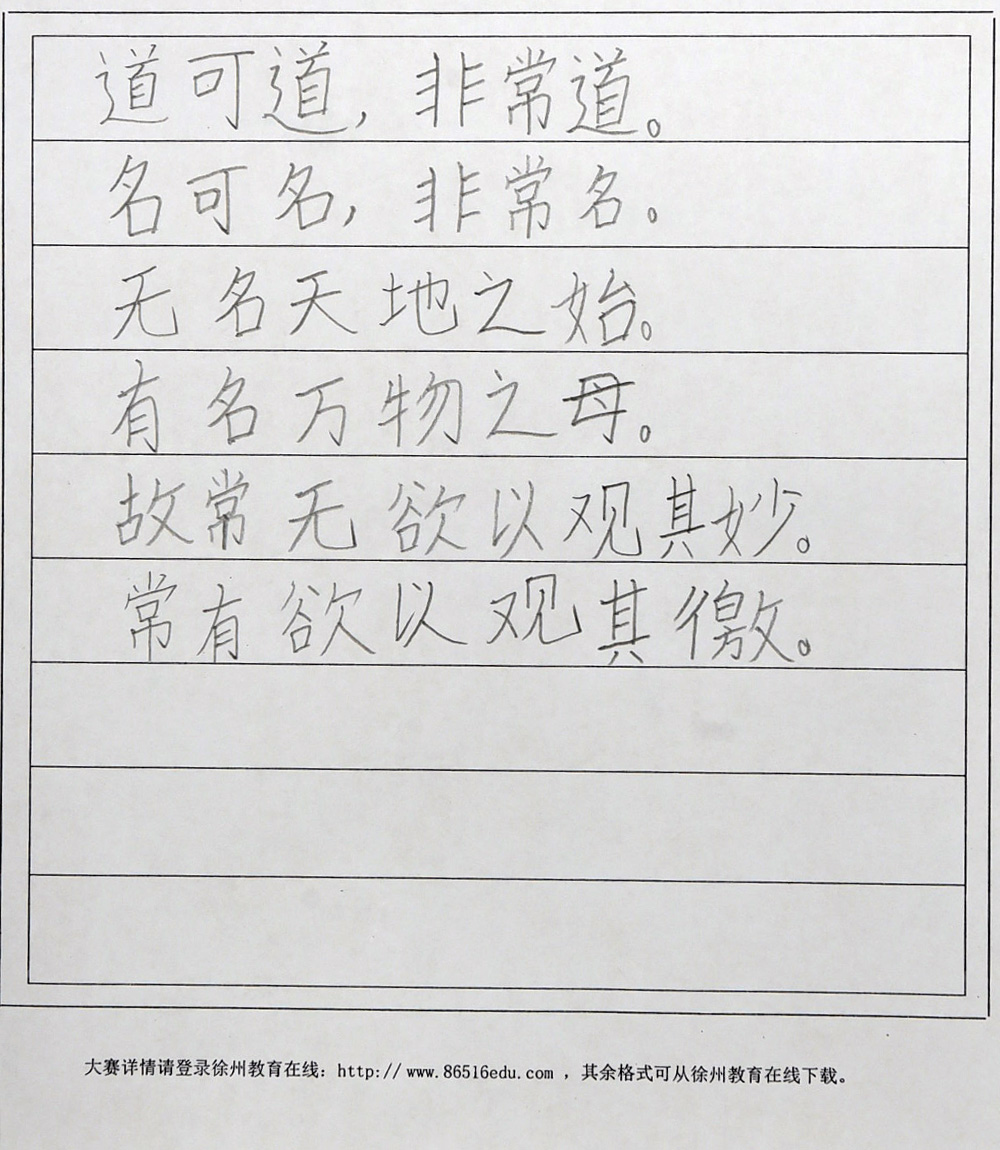 道可道，非常道。
名可名，非常名。
无名天地之始。
有名万物之母。
故常无欲以观其妙。
常有欲以观其徼。
大赛详情请登录徐州教育在线：http://www.86516edu.com，其余格式可从徐州教育在线下载。